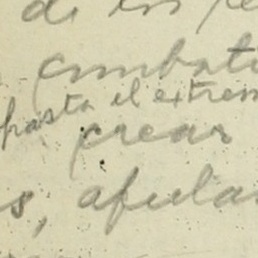 de los
combati
hasta el extrem
crear
s, apela